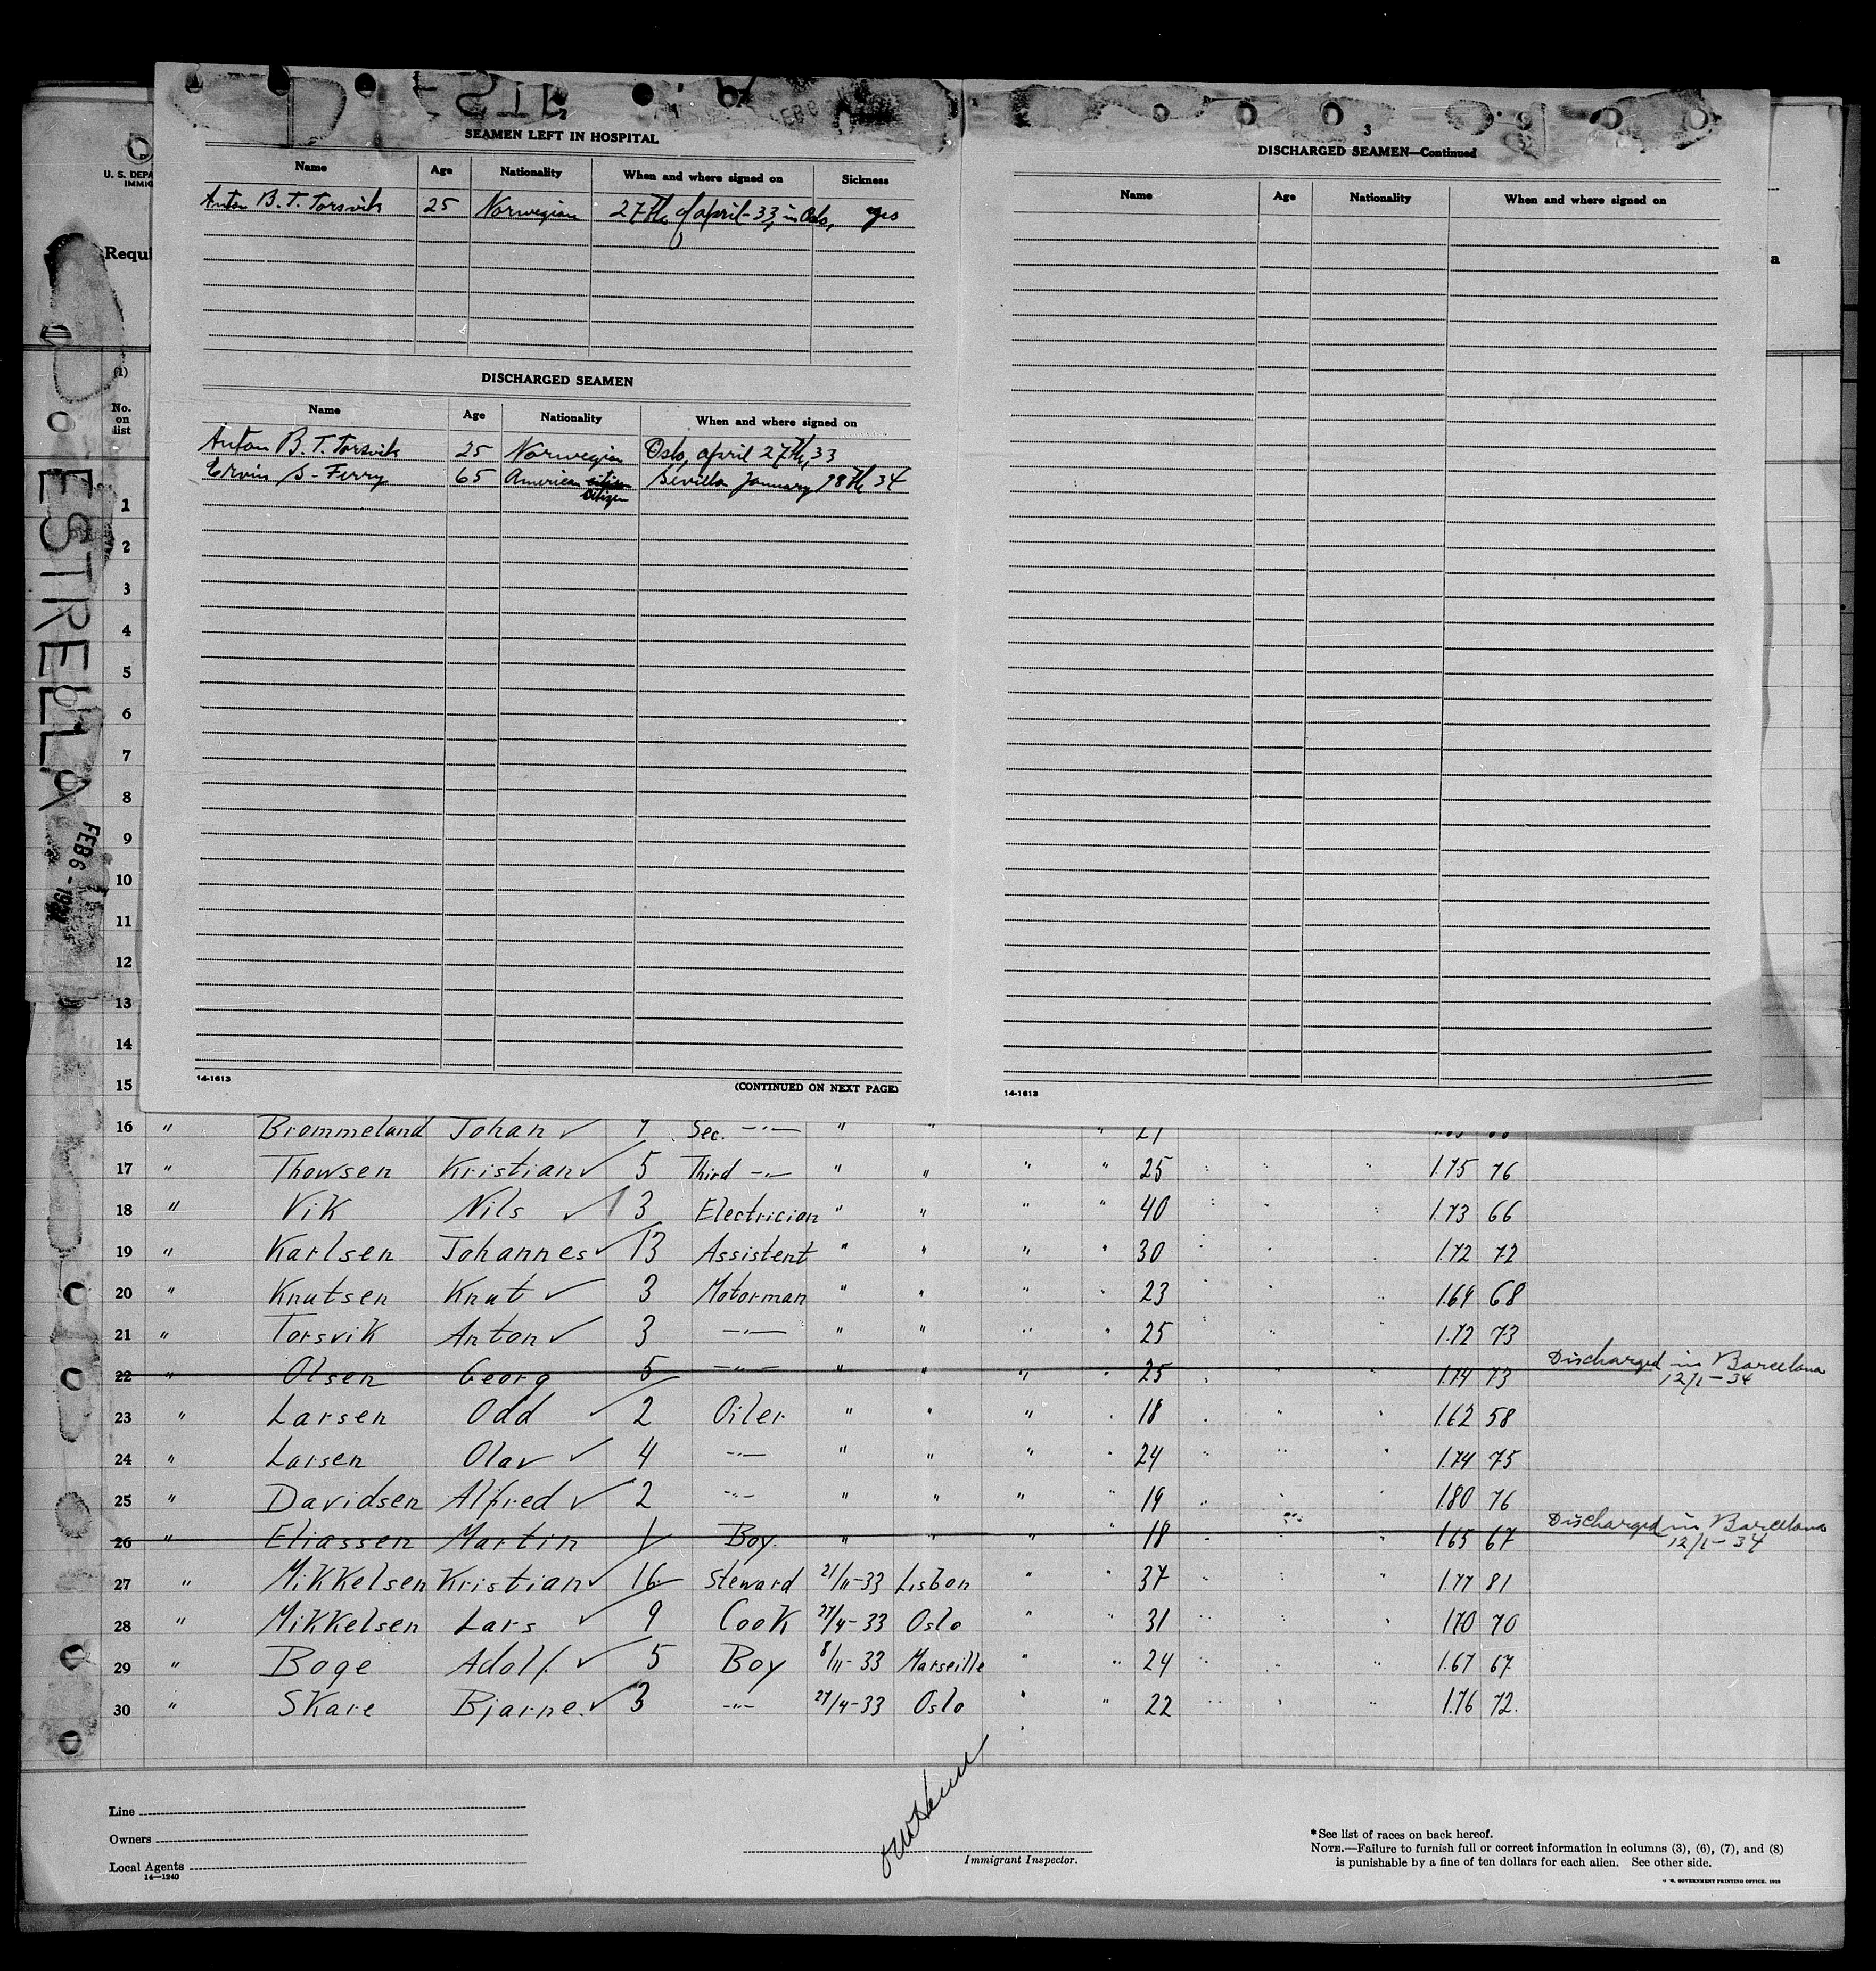 SEAMEN LEFT IN HOSPITAL
Name Age Nationality When and where signed on Sickness
Anton B. T. Torsvik 25 Norwegian 27th of april-33, in Oslo, yes
DISCHARGED SEAMEN
Name Age Nationality When and where signed on
Anton B. T. Torsvik 25 Norwegian Oslo, april 27th, 33
Ervin S. Ferry 65 American citizen Sevilla January 18th 34
citizen
14-1613 (CONTINUED ON NEXT PAGE)
3
DISCHARGED SEAMEN—Continued
Name Age Nationality When and where signed on
14-1613
U. S. DEPA
IMMIG
Requi
a
(1)
No.
on
list
ESTRELLA
FEB 6 - 1934
1
2
3
4
5
6
7
8
9
10
11
12
13
14
15
16 " Brommeland Johan ✓ 7 Sec. -"- " " " 21
17 " Thowsen Kristian ✓ 5 Third -"- " " " " 25 " " " 1.75 76
18 " Vik Nils ✓ 3 Electrician " " " " 40 " " " 1.73 66
19 " Karlsen Johannes ✓ 13 Assistent " " " " 30 " " " 1.72 72
20 " Knutsen Knut ✓ 3 Motorman " " " " 23 " " " 1.69 68
21 " Torsvik Anton ✓ 3 -"- " " " " 25 " " " 1.72 73
22 " Olsen Georg 5 -"- " " " " 25 " " " 1.74 73 Discharged in Barcelona
12/1-34
23 " Larsen Odd ✓ 2 Oiler " " " " 18 " " " 1.62 58
24 " Larsen Olav ✓ 4 -"- " " " " 24 " " " 1.74 75
25 " Davidsen Alfred ✓ 2 -"- " " " " 19 " " " 1.80 76
26 " Eliassen Martin 1 Boy. " " " " 18 " " " 1.65 67 Discharged in Barcelona
12/1-34
27 " Mikkelsen Kristian ✓ 16 Steward 21/11-33 Lisbon " " 37 " " " 1.77 81
28 " Mikkelsen Lars ✓ 9 Cook 27/4-33 Oslo " 31 " " " 1.70 70
29 " Boge Adolf. ✓ 5 Boy 8/11-33 Marseille " " 24 " " " 1.67 67
30 " Skare Bjarne. ✓ 3 -"- 27/4-33 Oslo " " 22 " " " 1.76 72.
Line
Owners
Local Agents
14—1240
Immigrant Inspector.
* See list of races on back hereof.
NOTE.—Failure to furnish full or correct information in columns (3), (6), (7), and (8)
is punishable by a fine of ten dollars for each alien. See other side.
GOVERNMENT PRINTING OFFICE.